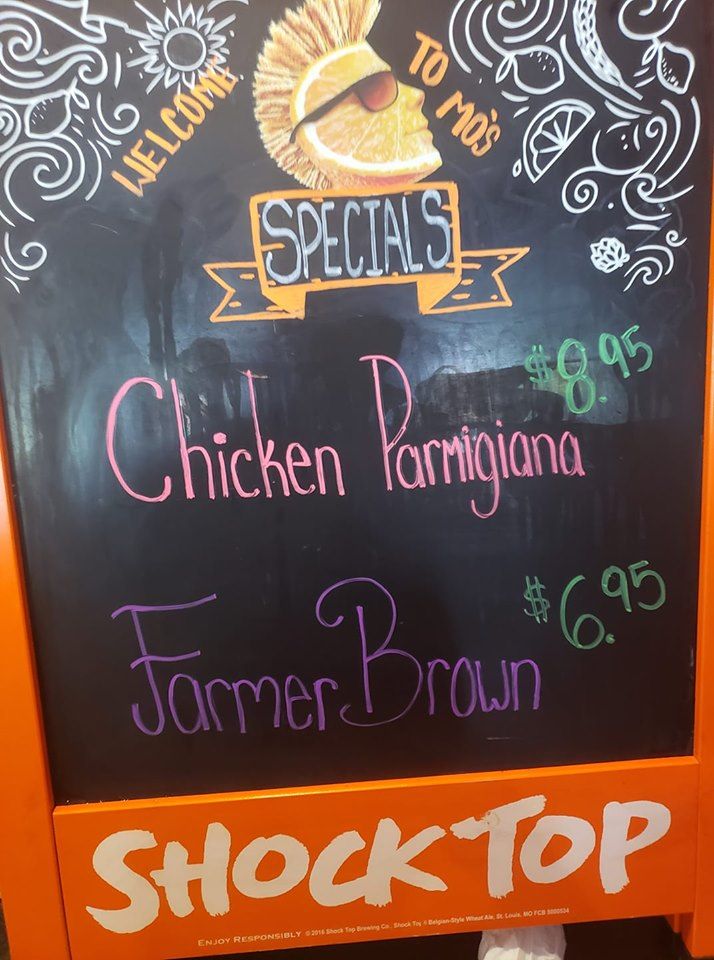 WELCOME TO MO'S
SPECIALS
$8.95
Chicken Parmigiana
$6.95
Farmer Brown
SHOCK TOP
ENJOY RESPONSIBLY © 2016 Shock Top Brewing Co., Shock Top® Belgian-Style Wheat Ale, St. Louis, MO FCB 8000534